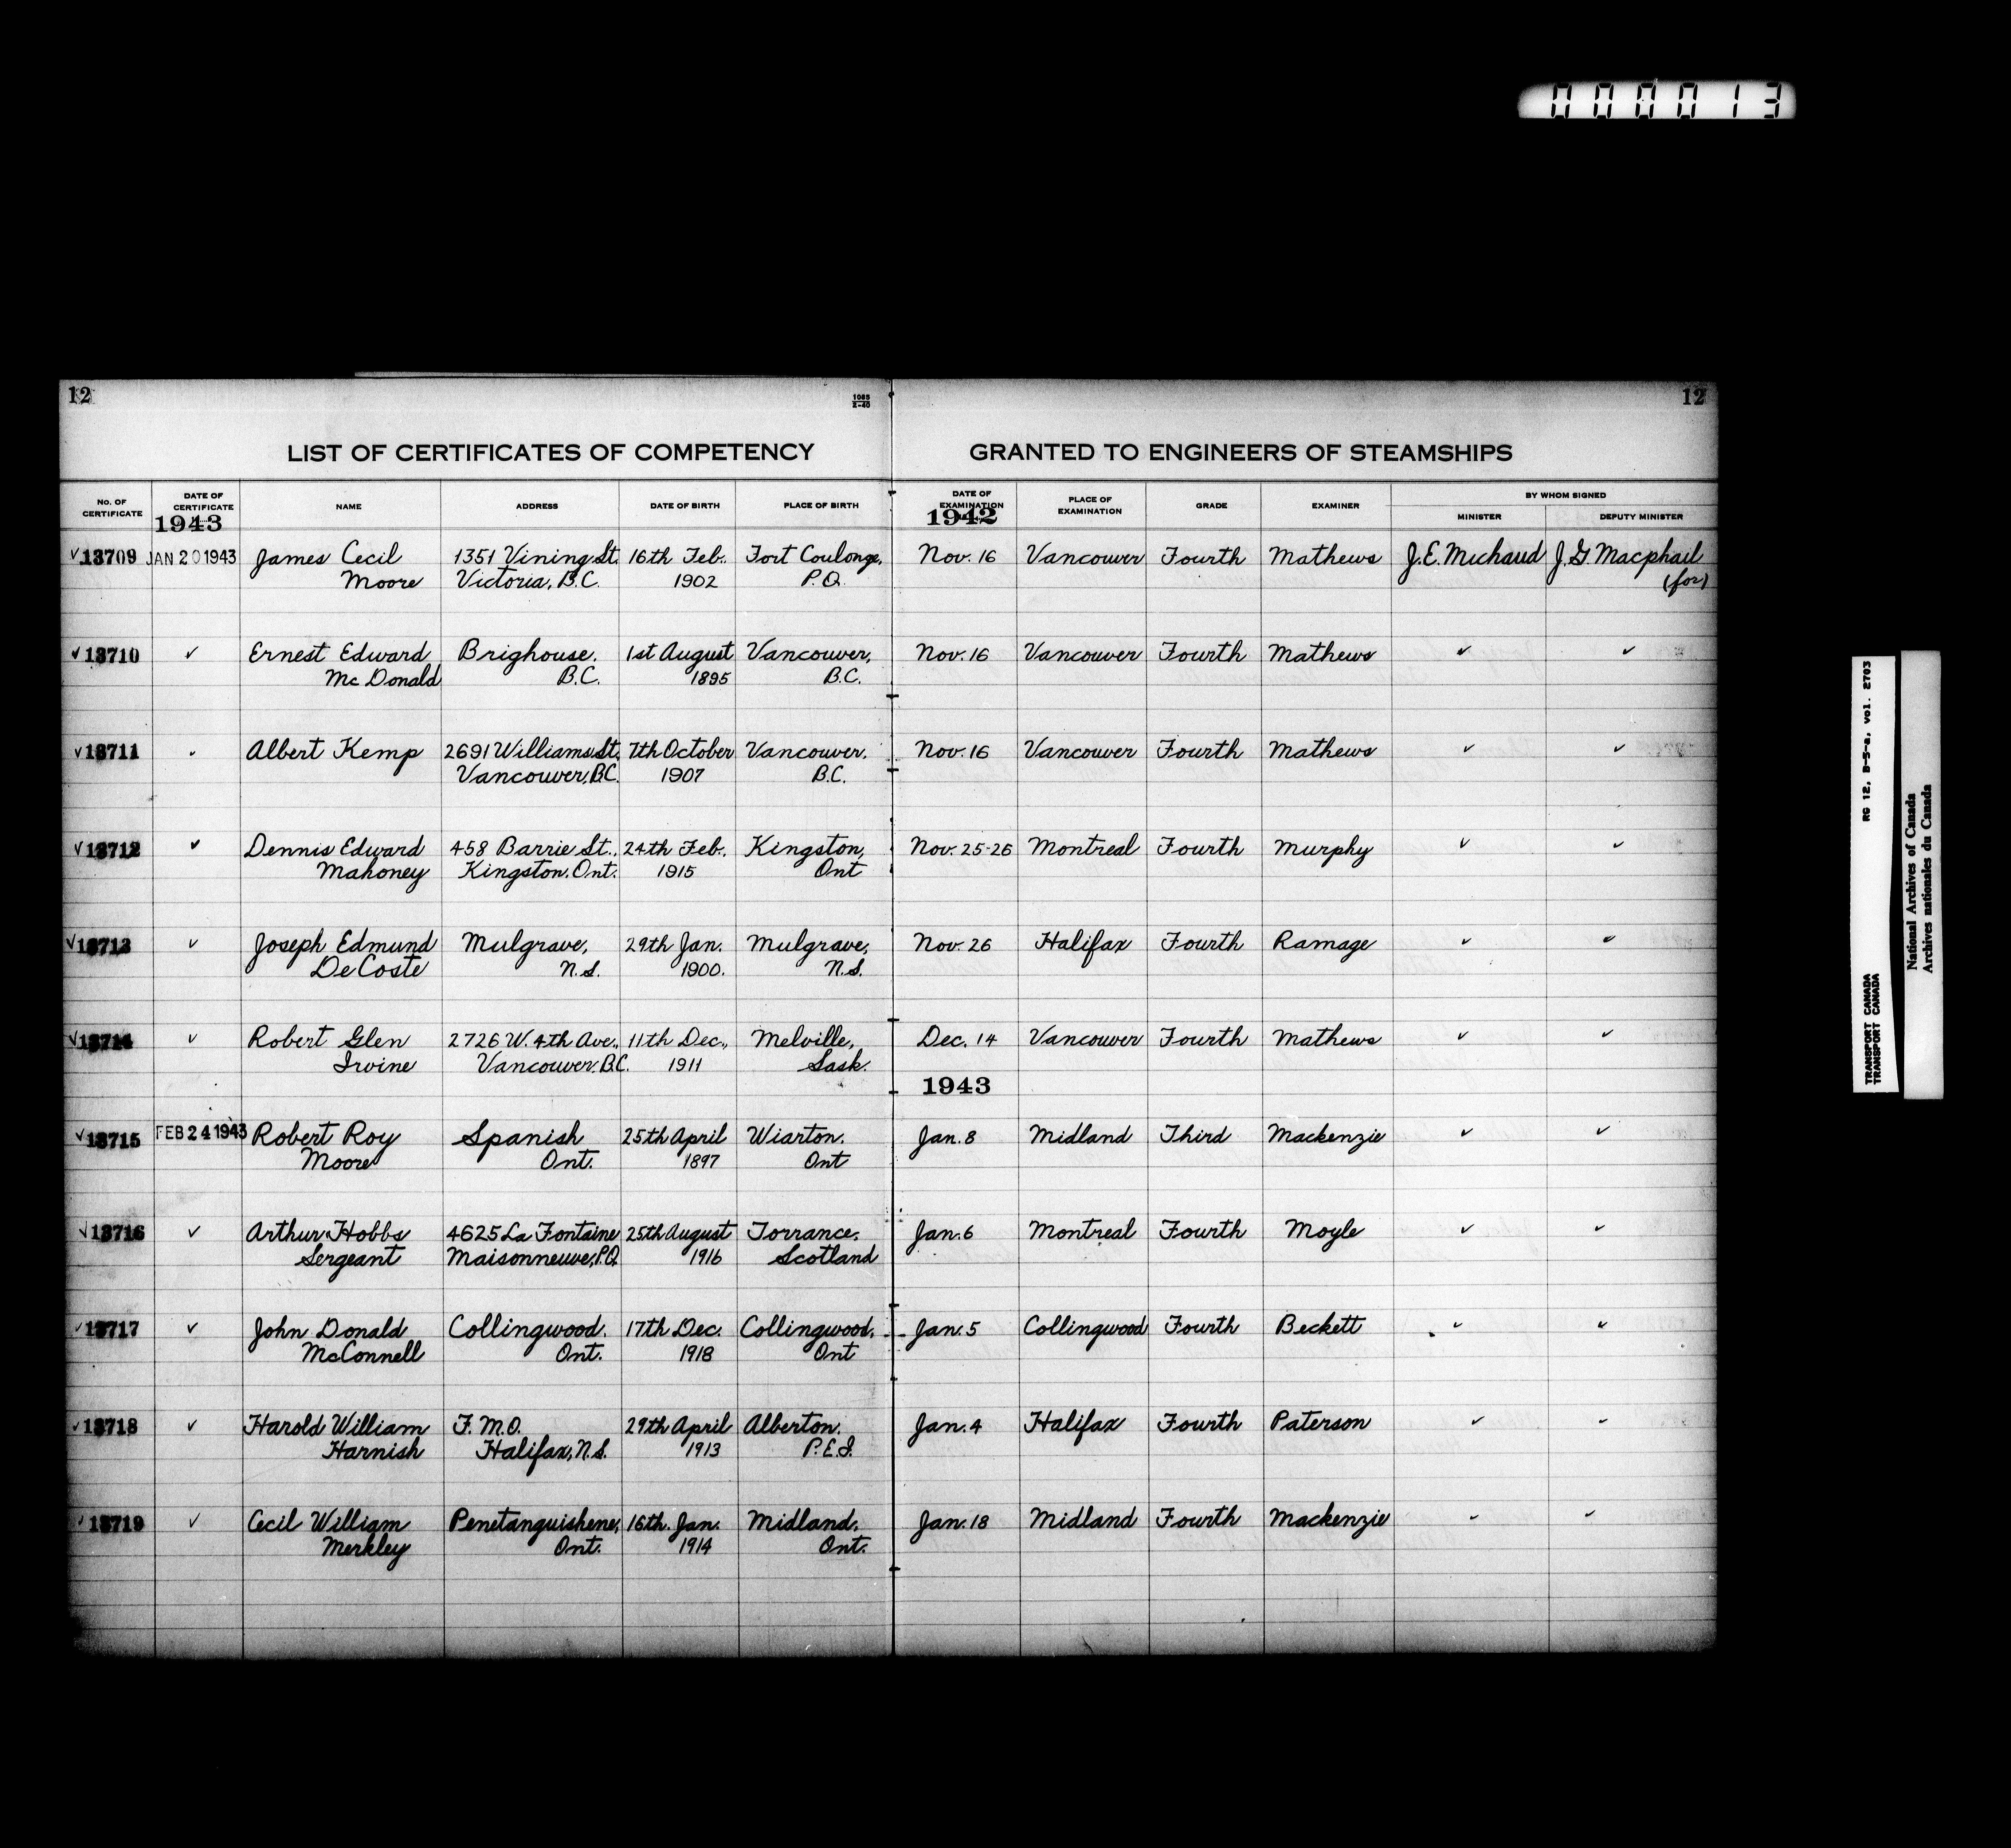 000013
12
1085
2-40
12
LIST OF CERTIFICATES OF COMPETENCY GRANTED TO ENGINEERS OF STEAMSHIPS
No. OF CERTIFICATE DATE OF CERTIFICATE NAME ADDRESS DATE OF BIRTH PLACE OF BIRTH DATE OF EXAMINATION PLACE OF EXAMINATION GRADE EXAMINER BY WHOM SIGNED
MINISTER DEPUTY MINISTER
1943 1942
✓13709 JAN 20 1943 James Cecil 1351 Vining St. 16th Feb. Fort Coulonge, Nov. 16 Vancouver Fourth Mathews J.E. Michaud J.G. Macphail
Moore Victoria, B.C. 1902 P.Q. (for)
✓13710 ✓ Ernest Edward Brighouse. 1st August Vancouver, Nov. 16 Vancouver Fourth Mathews ✓ ✓
McDonald B.C. 1895 B.C.
✓13711 ✓ Albert Kemp 2691 Williams St. 7th October Vancouver. Nov. 16 Vancouver Fourth Mathews ✓ ✓
Vancouver, B.C. 1907 B.C.
✓13712 ✓ Dennis Edward 458 Barrie St., 24th Feb. Kingston, Nov. 25-26 Montreal Fourth Murphy ✓ ✓
Mahoney Kingston. Ont. 1915 Ont
✓13713 ✓ Joseph Edmund Mulgrave, 29th Jan. Mulgrave, Nov. 26 Halifax Fourth Ramage ✓ ✓
DeCoste N.S. 1900. N.S.
✓13714 ✓ Robert Glen 2726 W. 4th Ave., 11th Dec., Melville, Dec. 14 Vancouver Fourth Mathews ✓ ✓
Irvine Vancouver. B.C. 1911 Sask.
1943
✓13715 FEB 24 1943 Robert Roy Spanish 25th April Wiarton. Jan. 8 Midland Third Mackenzie ✓ ✓
Moore Ont. 1897 Ont
✓13716 ✓ Arthur Hobbs 4625 La Fontaine 25th August Torrance. Jan. 6 Montreal Fourth Moyle ✓ ✓
Sergeant Maisonneuve, P.Q. 1916 Scotland
✓13717 ✓ John Donald Collingwood. 17th Dec. Collingwood. Jan. 5 Collingwood Fourth Beckett ✓ ✓
McConnell Ont. 1918 Ont
✓13718 ✓ Harold William F.M.O. 29th April Alberton. Jan. 4 Halifax Fourth Paterson ✓ ✓
Harnish Halifax, N.S. 1913 P.E.I.
✓13719 ✓ Cecil William Penetanguishene, 16th. Jan. Midland. Jan. 18 Midland Fourth Mackenzie ✓ ✓
Merkley Ont. 1914 Ont.
TRANSPORT CANADA RG 12, B-5-a, vol. 2703
TRANSPORT CANADA
National Archives of Canada
Archives nationales du Canada